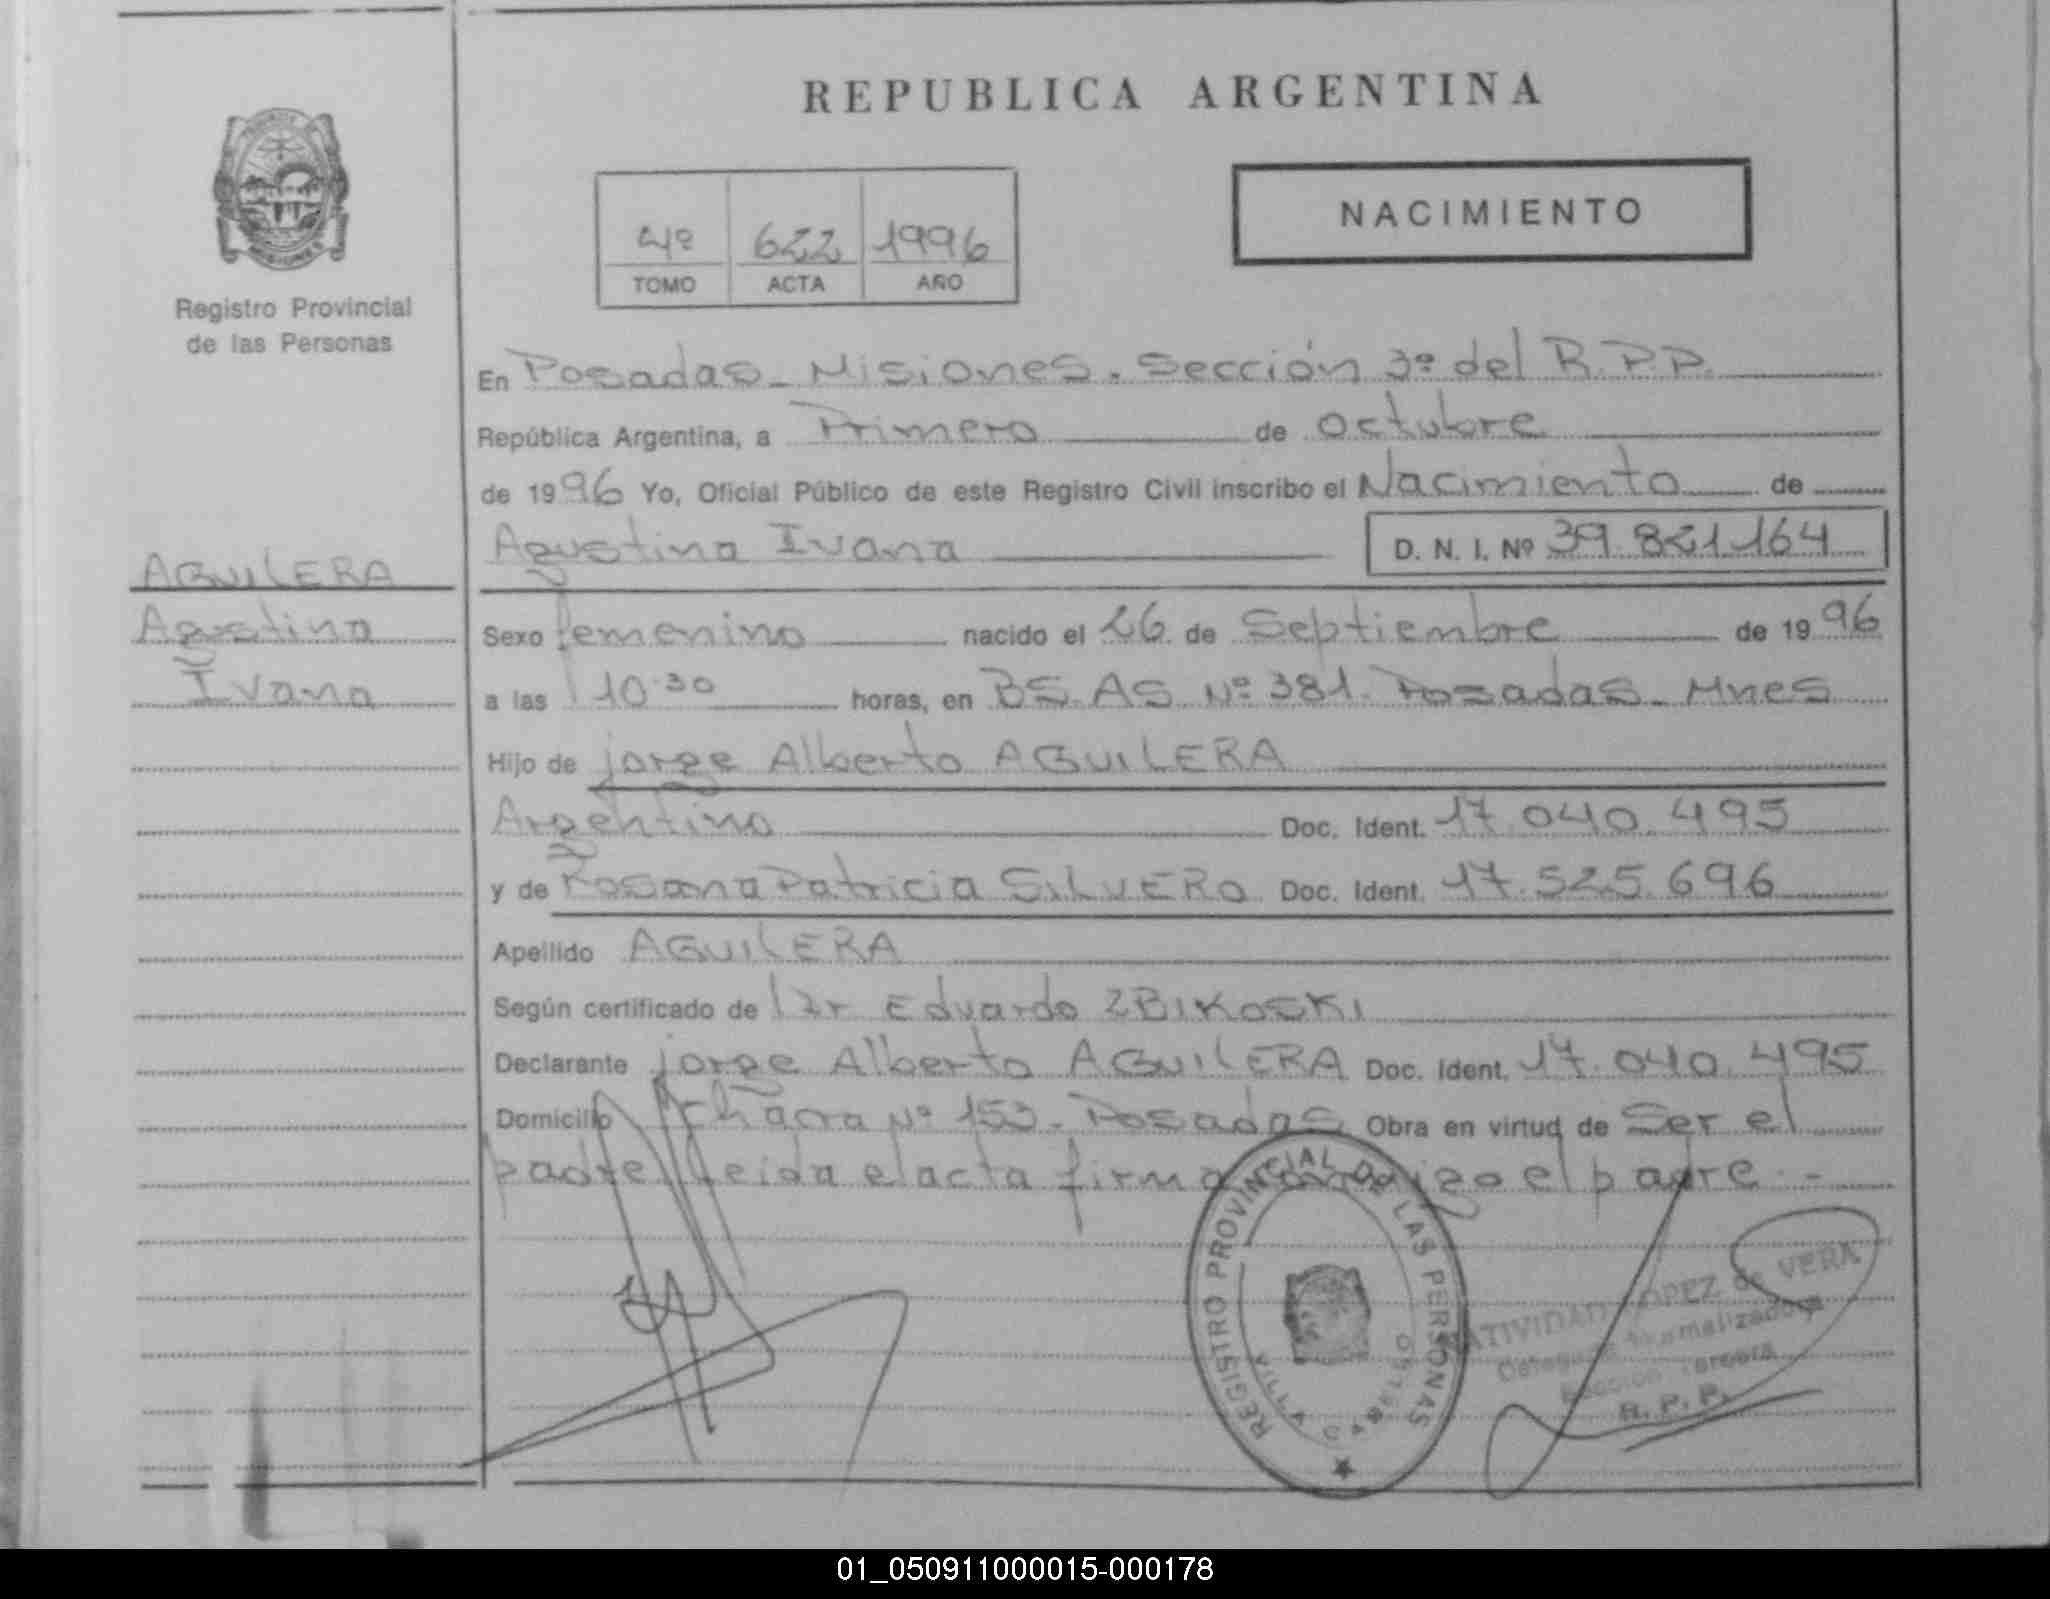 REPUBLICA ARGENTINA
NACIMIENTO
4º 622 1996
TOMO ACTA AÑO
Registro Provincial
de las Personas
En Posadas - Misiones. Sección 3ª del R.P.P.
República Argentina, a Primero de octubre
de 1996 Yo, Oficial Público de este Registro Civil inscribo el Nacimiento de
Agustina Ivana D. N. I. Nº 39.821.164
AGUILERA
Agustina
Ivana
Sexo femenino nacido el 26 de Septiembre de 1996
a las 10.30 horas, en BS.AS Nº 381. Posadas - Mnes
Hijo de jorge Alberto AGUILERA
Argentino Doc. Ident. 17.040.495
y de Rosana Patricia SILVERO Doc. Ident. 17.525.696
Apellido AGUILERA
Según certificado de Dr Eduardo ZBIKOSKI
Declarante jorge Alberto AGUILERA Doc. Ident. 17.040.495
Domicilio Chacra Nº 153 - Posadas Obra en virtud de Ser el
padre leida el acta firma conmigo el padre.-
REGISTRO PROVINCIAL DE LAS PERSONAS
VILLA CABELLO
NATIVIDAD LOPEZ de VERA
Delegada Normalizadora
Sección Tercera
R. P. P.
01_050911000015-000178